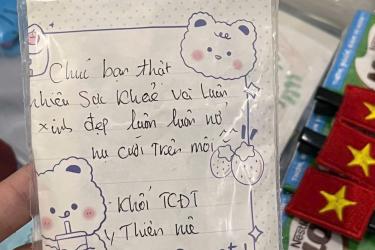 Chúc bạn thật
nhiều Sức Khoẻ Và Luôn
xinh đẹp luôn luôn nở
nụ cười trên môi
Khối TCĐT
Thiên